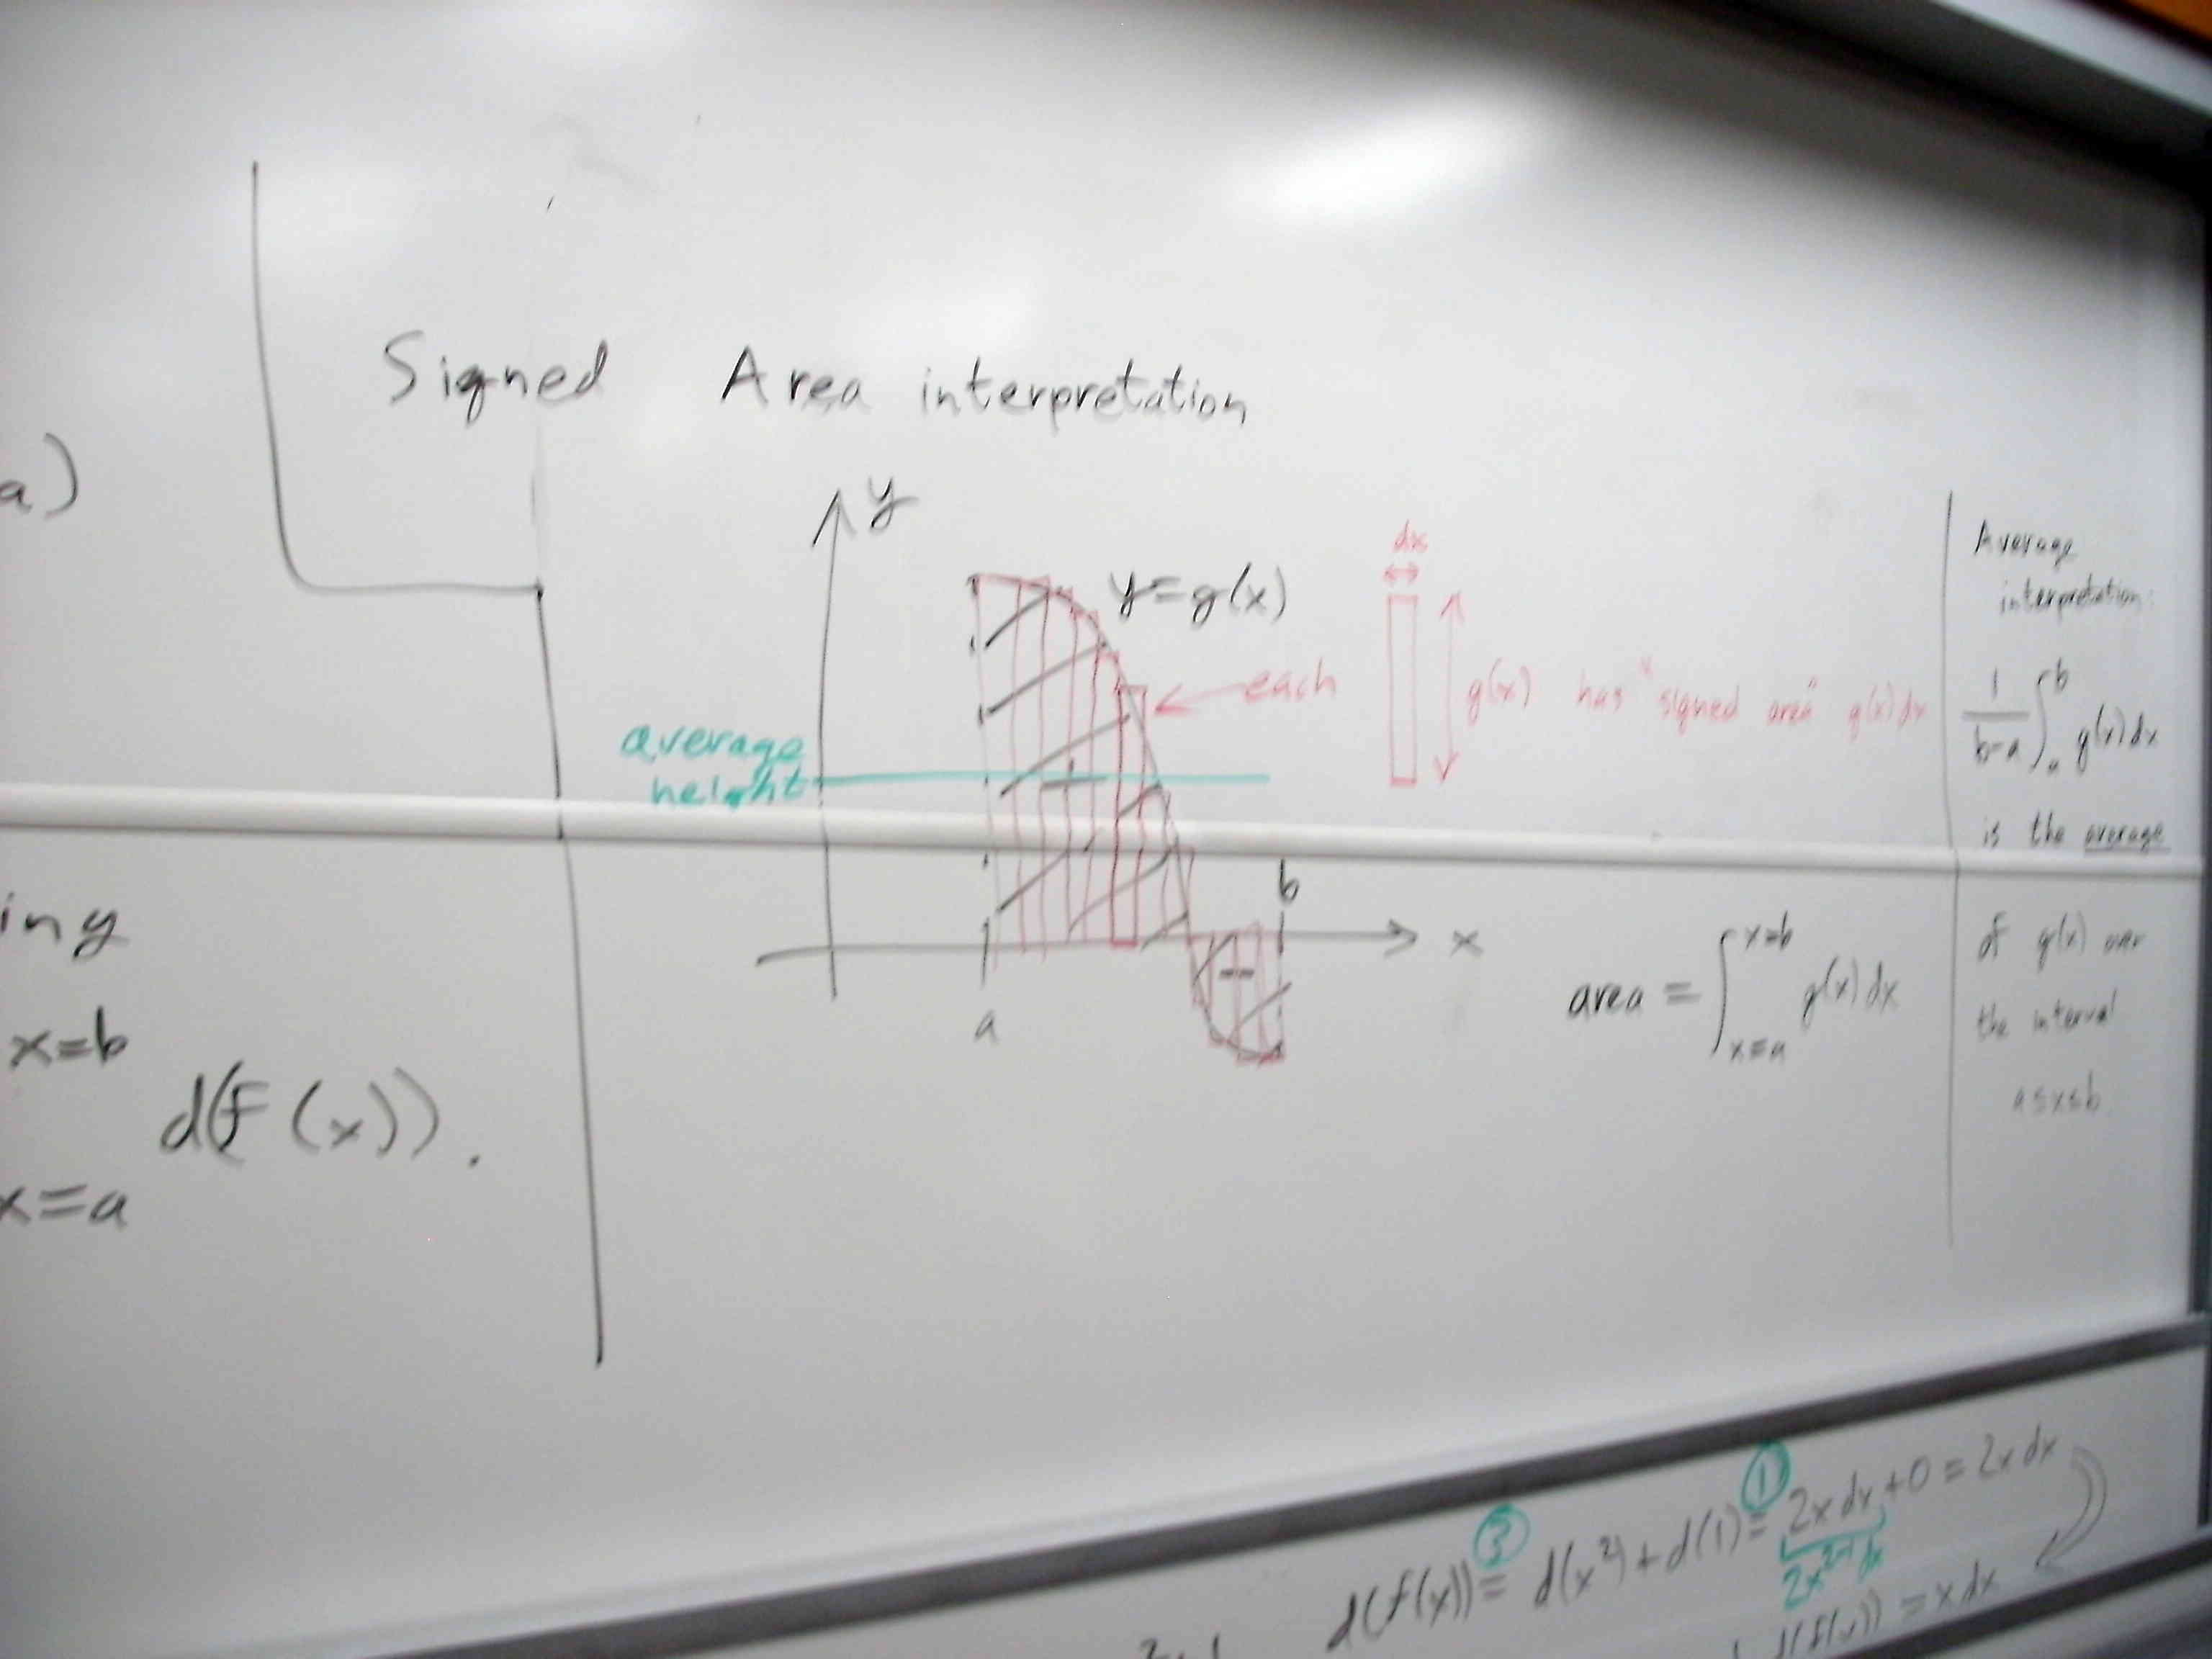 a)
ing
x=b
d(f(x)).
x=a
Signed Area interpretation
y
y=g(x)
average
height
+
−
a
b
x
each
dx
g(x) has "signed area" g(x)dx
area = ∫_{x=a}^{x=b} g(x)dx
Average
interpretation:
1/(b-a) ∫_a^b g(x)dx
is the average
of g(x) over
the interval
a≤x≤b
d(f(x)) = d(x²)+d(1) = 2xdx+0 = 2xdx
1
2x²⁻¹dx
d(f(x)) = xdx